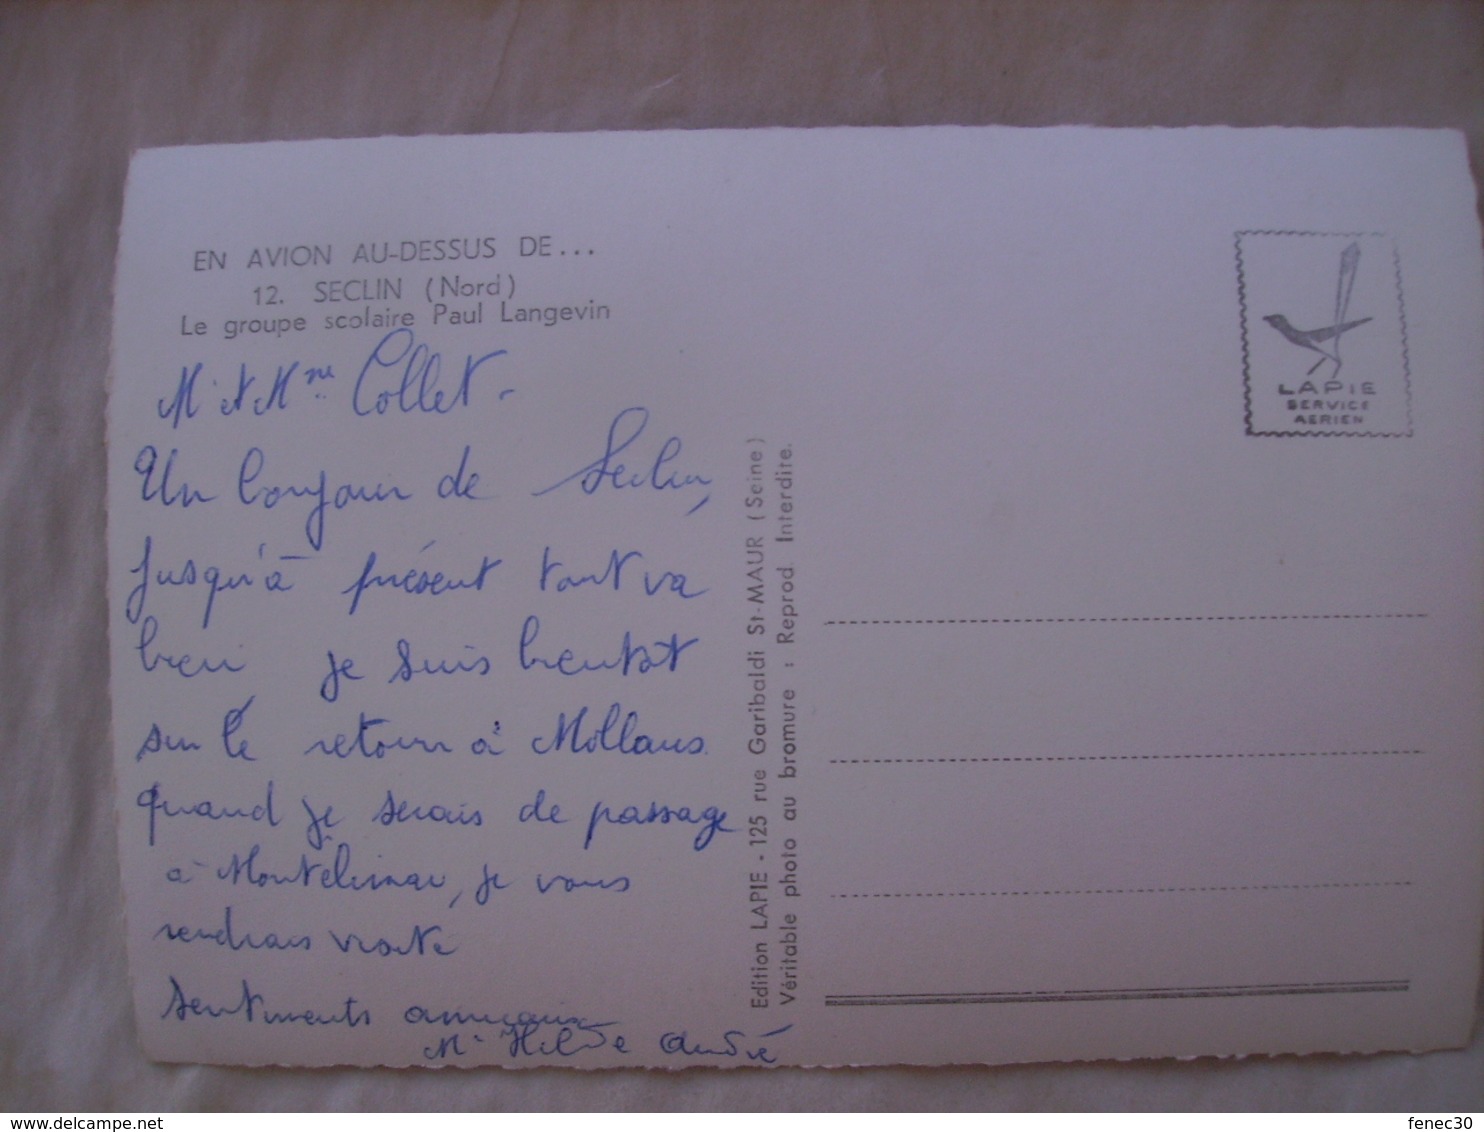 EN AVION AU-DESSUS DE...
12. SECLIN (Nord)
Le groupe scolaire Paul Langevin
M. et Mme Collet -
Un bonjour de Seclin,
jusqu'à présent tout va
bien, je suis bientôt
sur le retour à Mollans
quand je serais de passage
à Montélimar, je vous
rendrais visite
Sentiments amicaux
Mr Hilde André
Edition LAPIE - 125 rue Garibaldi St-MAUR (Seine)
Véritable photo au bromure : Reprod. Interdite.
LAPIE
SERVICE
AERIEN
delcampe.net
fenec30